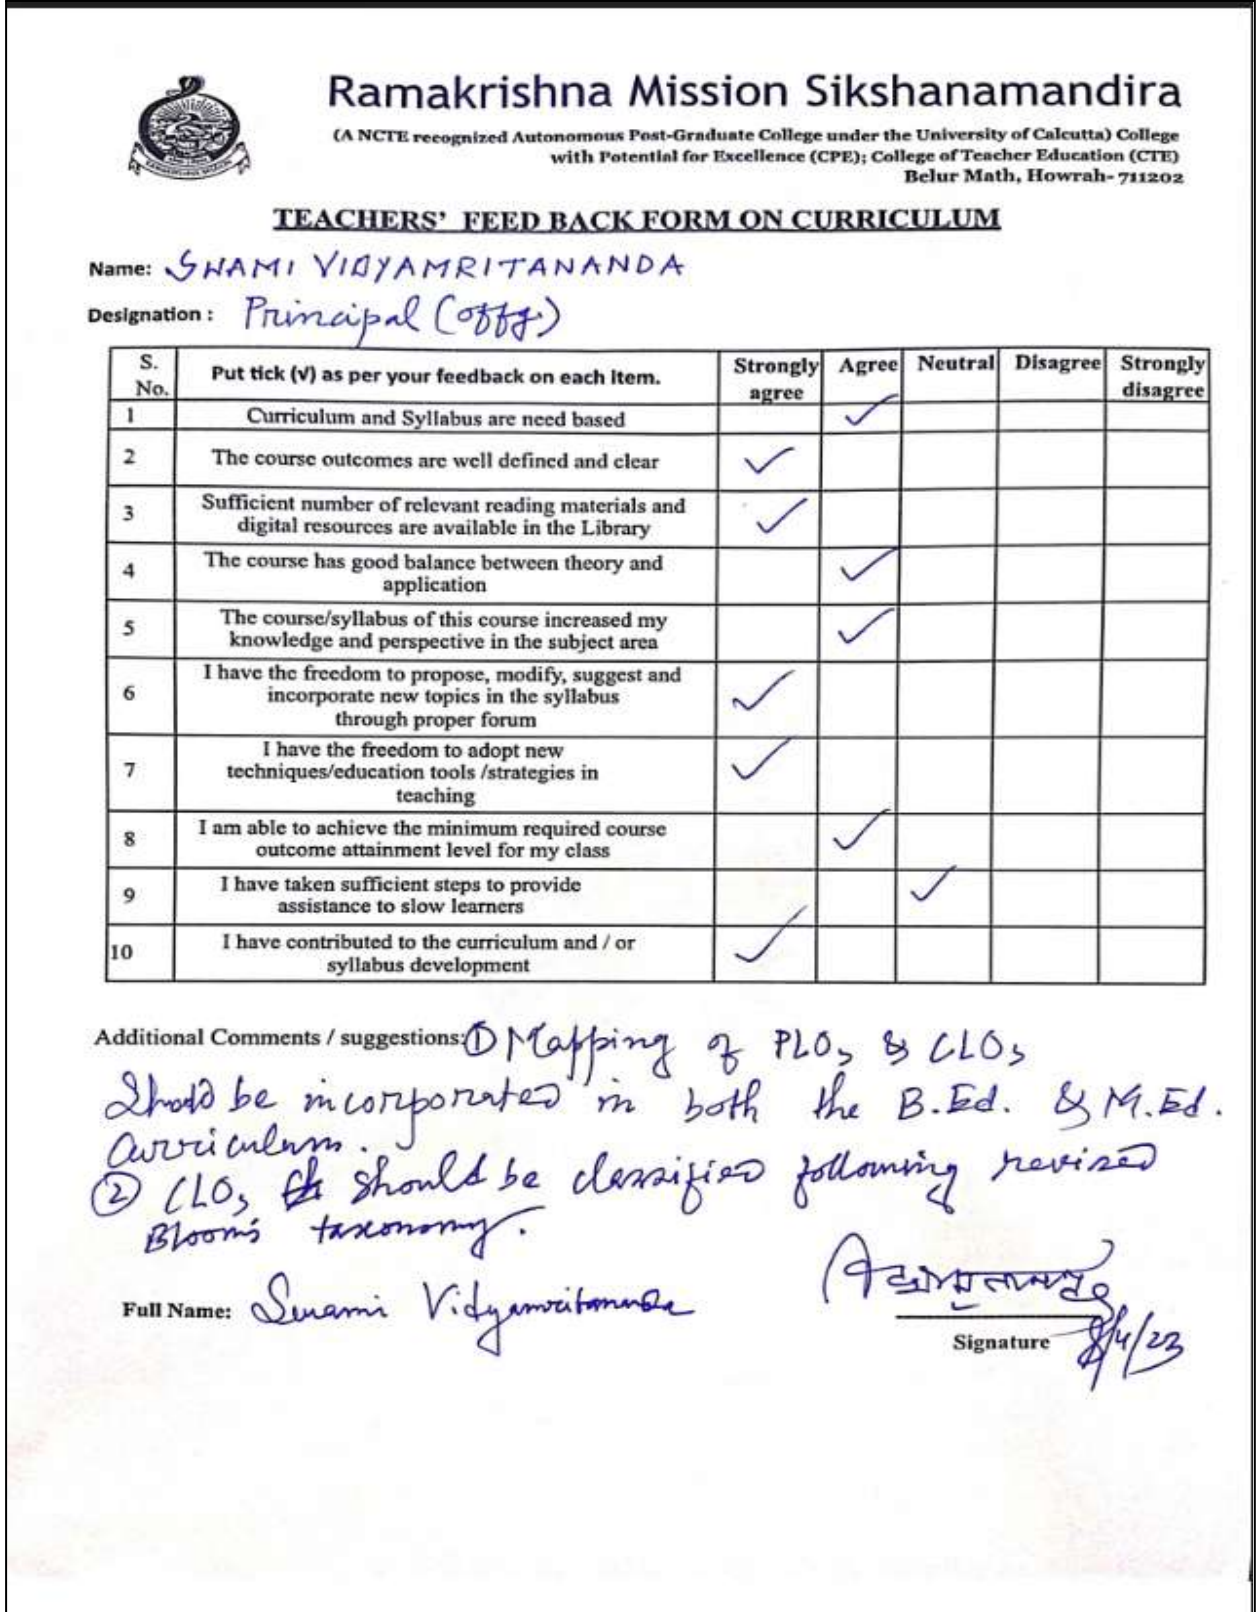 Ramakrishna Mission Sikshanamandira
(A NCTE recognized Autonomous Post-Graduate College under the University of Calcutta) College
with Potential for Excellence (CPE); College of Teacher Education (CTE)
Belur Math, Howrah- 711202
TEACHERS' FEED BACK FORM ON CURRICULUM
Name: SWAMI VIDYAMRITANANDA
Designation : Principal (offg.)
S. No. Put tick (√) as per your feedback on each item. Strongly agree Agree Neutral Disagree Strongly disagree
1 Curriculum and Syllabus are need based ✓
2 The course outcomes are well defined and clear ✓
3 Sufficient number of relevant reading materials and
digital resources are available in the Library ✓
4 The course has good balance between theory and
application ✓
5 The course/syllabus of this course increased my
knowledge and perspective in the subject area ✓
6 I have the freedom to propose, modify, suggest and
incorporate new topics in the syllabus
through proper forum ✓
7 I have the freedom to adopt new
techniques/education tools /strategies in
teaching ✓
8 I am able to achieve the minimum required course
outcome attainment level for my class ✓
9 I have taken sufficient steps to provide
assistance to slow learners ✓
10 I have contributed to the curriculum and / or
syllabus development ✓
Additional Comments / suggestions: ① Mapping of PLOs & CLOs
Should be incorporated in both the B.Ed. & M.Ed.
Curriculum.
② CLOs should be classified following revised
Bloom's taxonomy.
Full Name: Swami Vidyamritananda
Signature 8/4/23